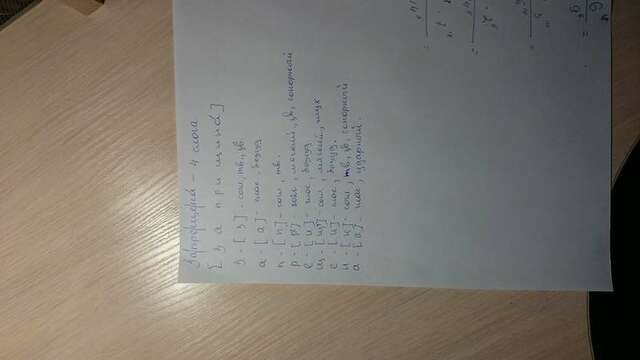 - 4 слога
[з а п ри щ и н а́]
з - [з] - сог, тв., зв.
а - [а] - глас, безуд
п - [п] - сог, тв.
р - [р'] - согл, мягкий, зв, сонорный
е - [и] - глас, безуд
щ - [щ'] - сог, мягкий, глух
е - [и] - глас, безуд.
н - [н] - согл, тв, зв, сонорный
а - [а] - глас, ударный.